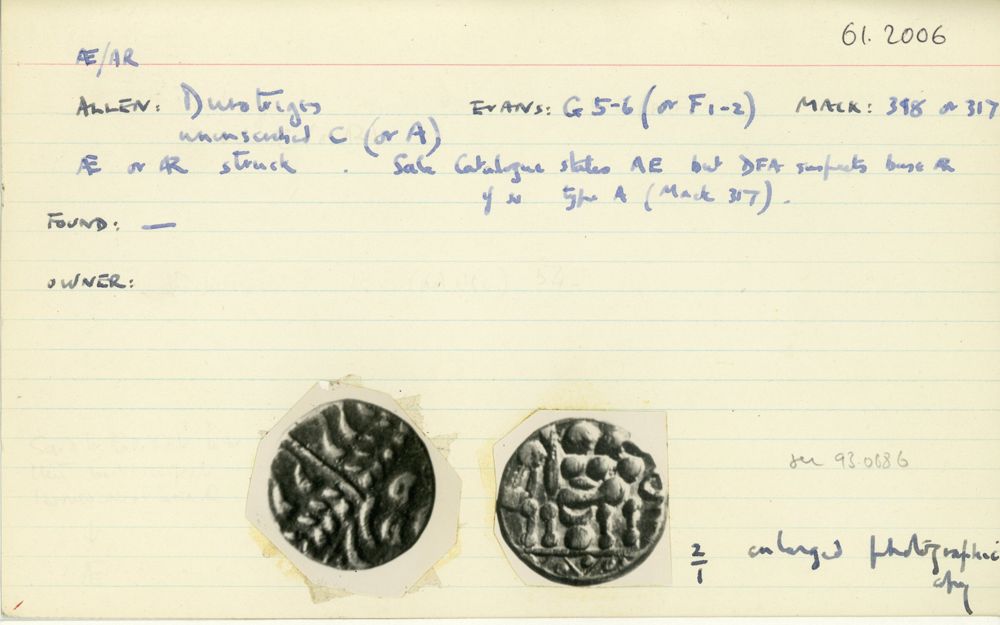 61.2006
Æ/AR
ALLEN: Durotriges EVANS: G 5-6 (or F1-2) MACK: 318 or 317
uninscribed C (or A)
Æ or AR struck . Sale Catalogue states AE but DFA suspects base AR
if so type A (Mack 317).
FOUND: —
OWNER:
see 93.0686
2/1 enlarged photographic
copy